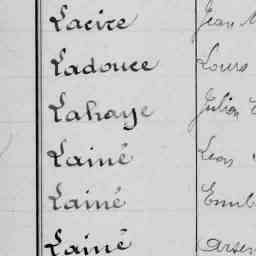 Lacire Jean
Ladouce Louis
Lahaye Julien
Lainé Léon
Lainé
Lainé Arsen